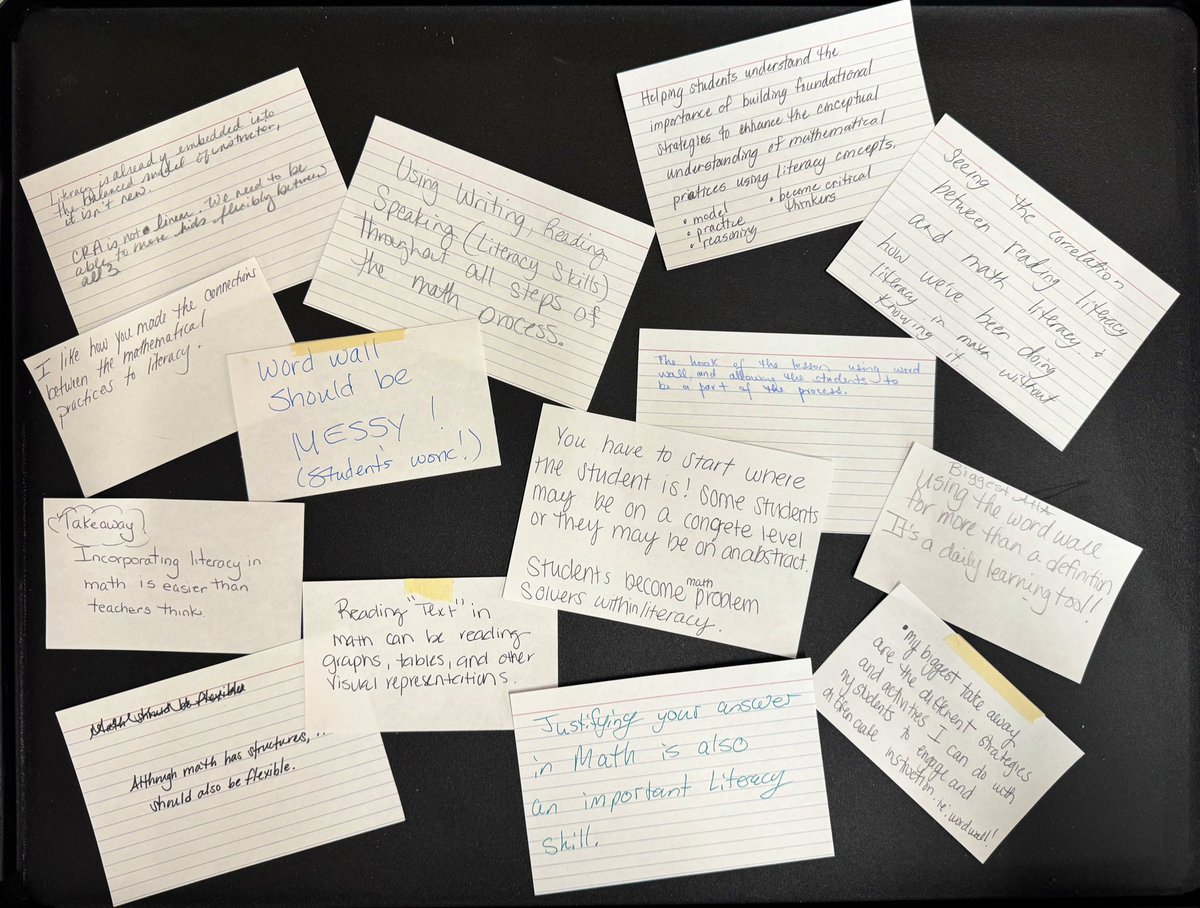 Literacy is already embedded into
the balanced model of instructor,
it isn't new.
CRA is not linear. We need to be
able to move kids flexibly between
all 3
Using Writing, Reading
Speaking (Literacy Skills)
throughout all steps of
the math process.
Helping students understand the
importance of building foundational
strategies to enhance the conceptual
understanding of mathematical
practices using literacy concepts.
• model
• practice
• reasoning
• become critical
thinkers
Seeing the correlation
between reading literacy
and math literacy &
how we've been doing
literacy in math without
knowing it
I like how you made the connections
between the mathematical
practices to literacy.
Word wall
should be
MESSY!
(students work!)
The hook of the lesson using word
wall, and allowing the students to
be a part of the process.
You have to start where
the student is! Some students
may be on a concrete level
or they may be on an abstract.
Students become math problem
solvers within literacy.
Biggest
using the word wall
for more than a definition
It's a daily learning tool!!
Takeaway
Incorporating literacy in
math is easier than
teachers think.
Reading "Text" in
math can be reading
graphs, tables, and other
visual representations.
• my biggest take away
are the different strategies
and activities I can do with
my students to engage and
differentiate instruction. ie: word wall!
Math should be flexible
Although math has structures,
should also be flexible.
Justifying your answer
in Math is also
an important Literacy
skill.